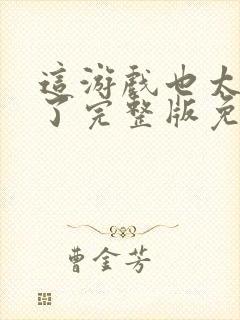 這游戲也太
了完整版免
曹金芳